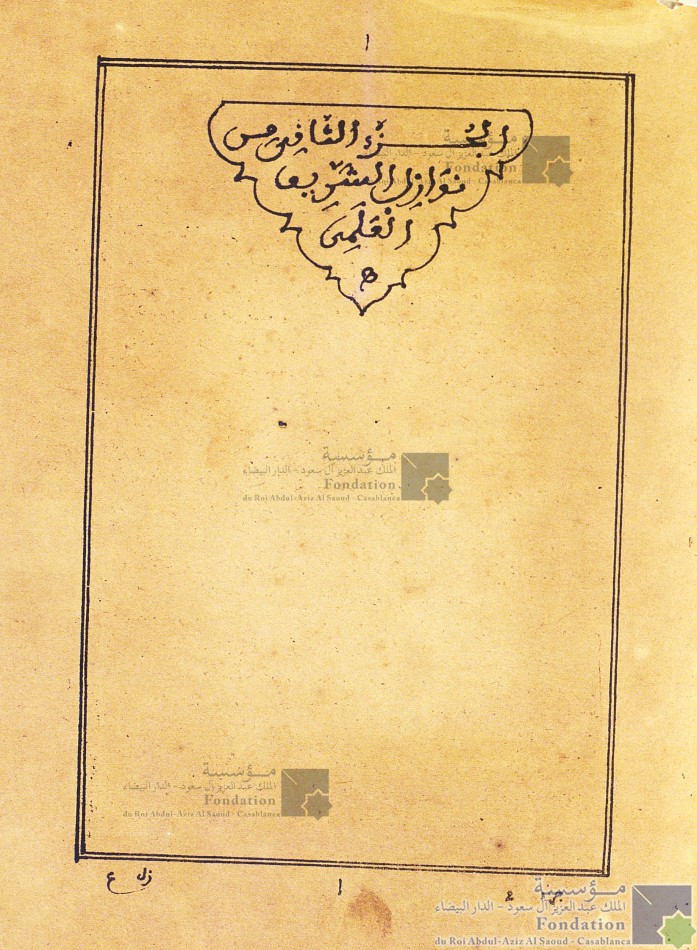 ا
الجزء الثاني من
نوازل الشريف
العلمي
ه
مؤسسة
الملك عبد العزيز آل سعود - الدار البيضاء
Fondation
du Roi Abdul-Aziz Al Saoud - Casablanca
مؤسسة
الملك عبد العزيز آل سعود - الدار البيضاء
Fondation
du Roi Abdul-Aziz Al Saoud - Casablanca
مؤسسة
الملك عبد العزيز آل سعود - الدار البيضاء
Fondation
du Roi Abdul-Aziz Al Saoud - Casablanca
ا
مؤسسة
الملك عبد العزيز آل سعود - الدار البيضاء
Fondation
du Roi Abdul-Aziz Al Saoud - Casablanca